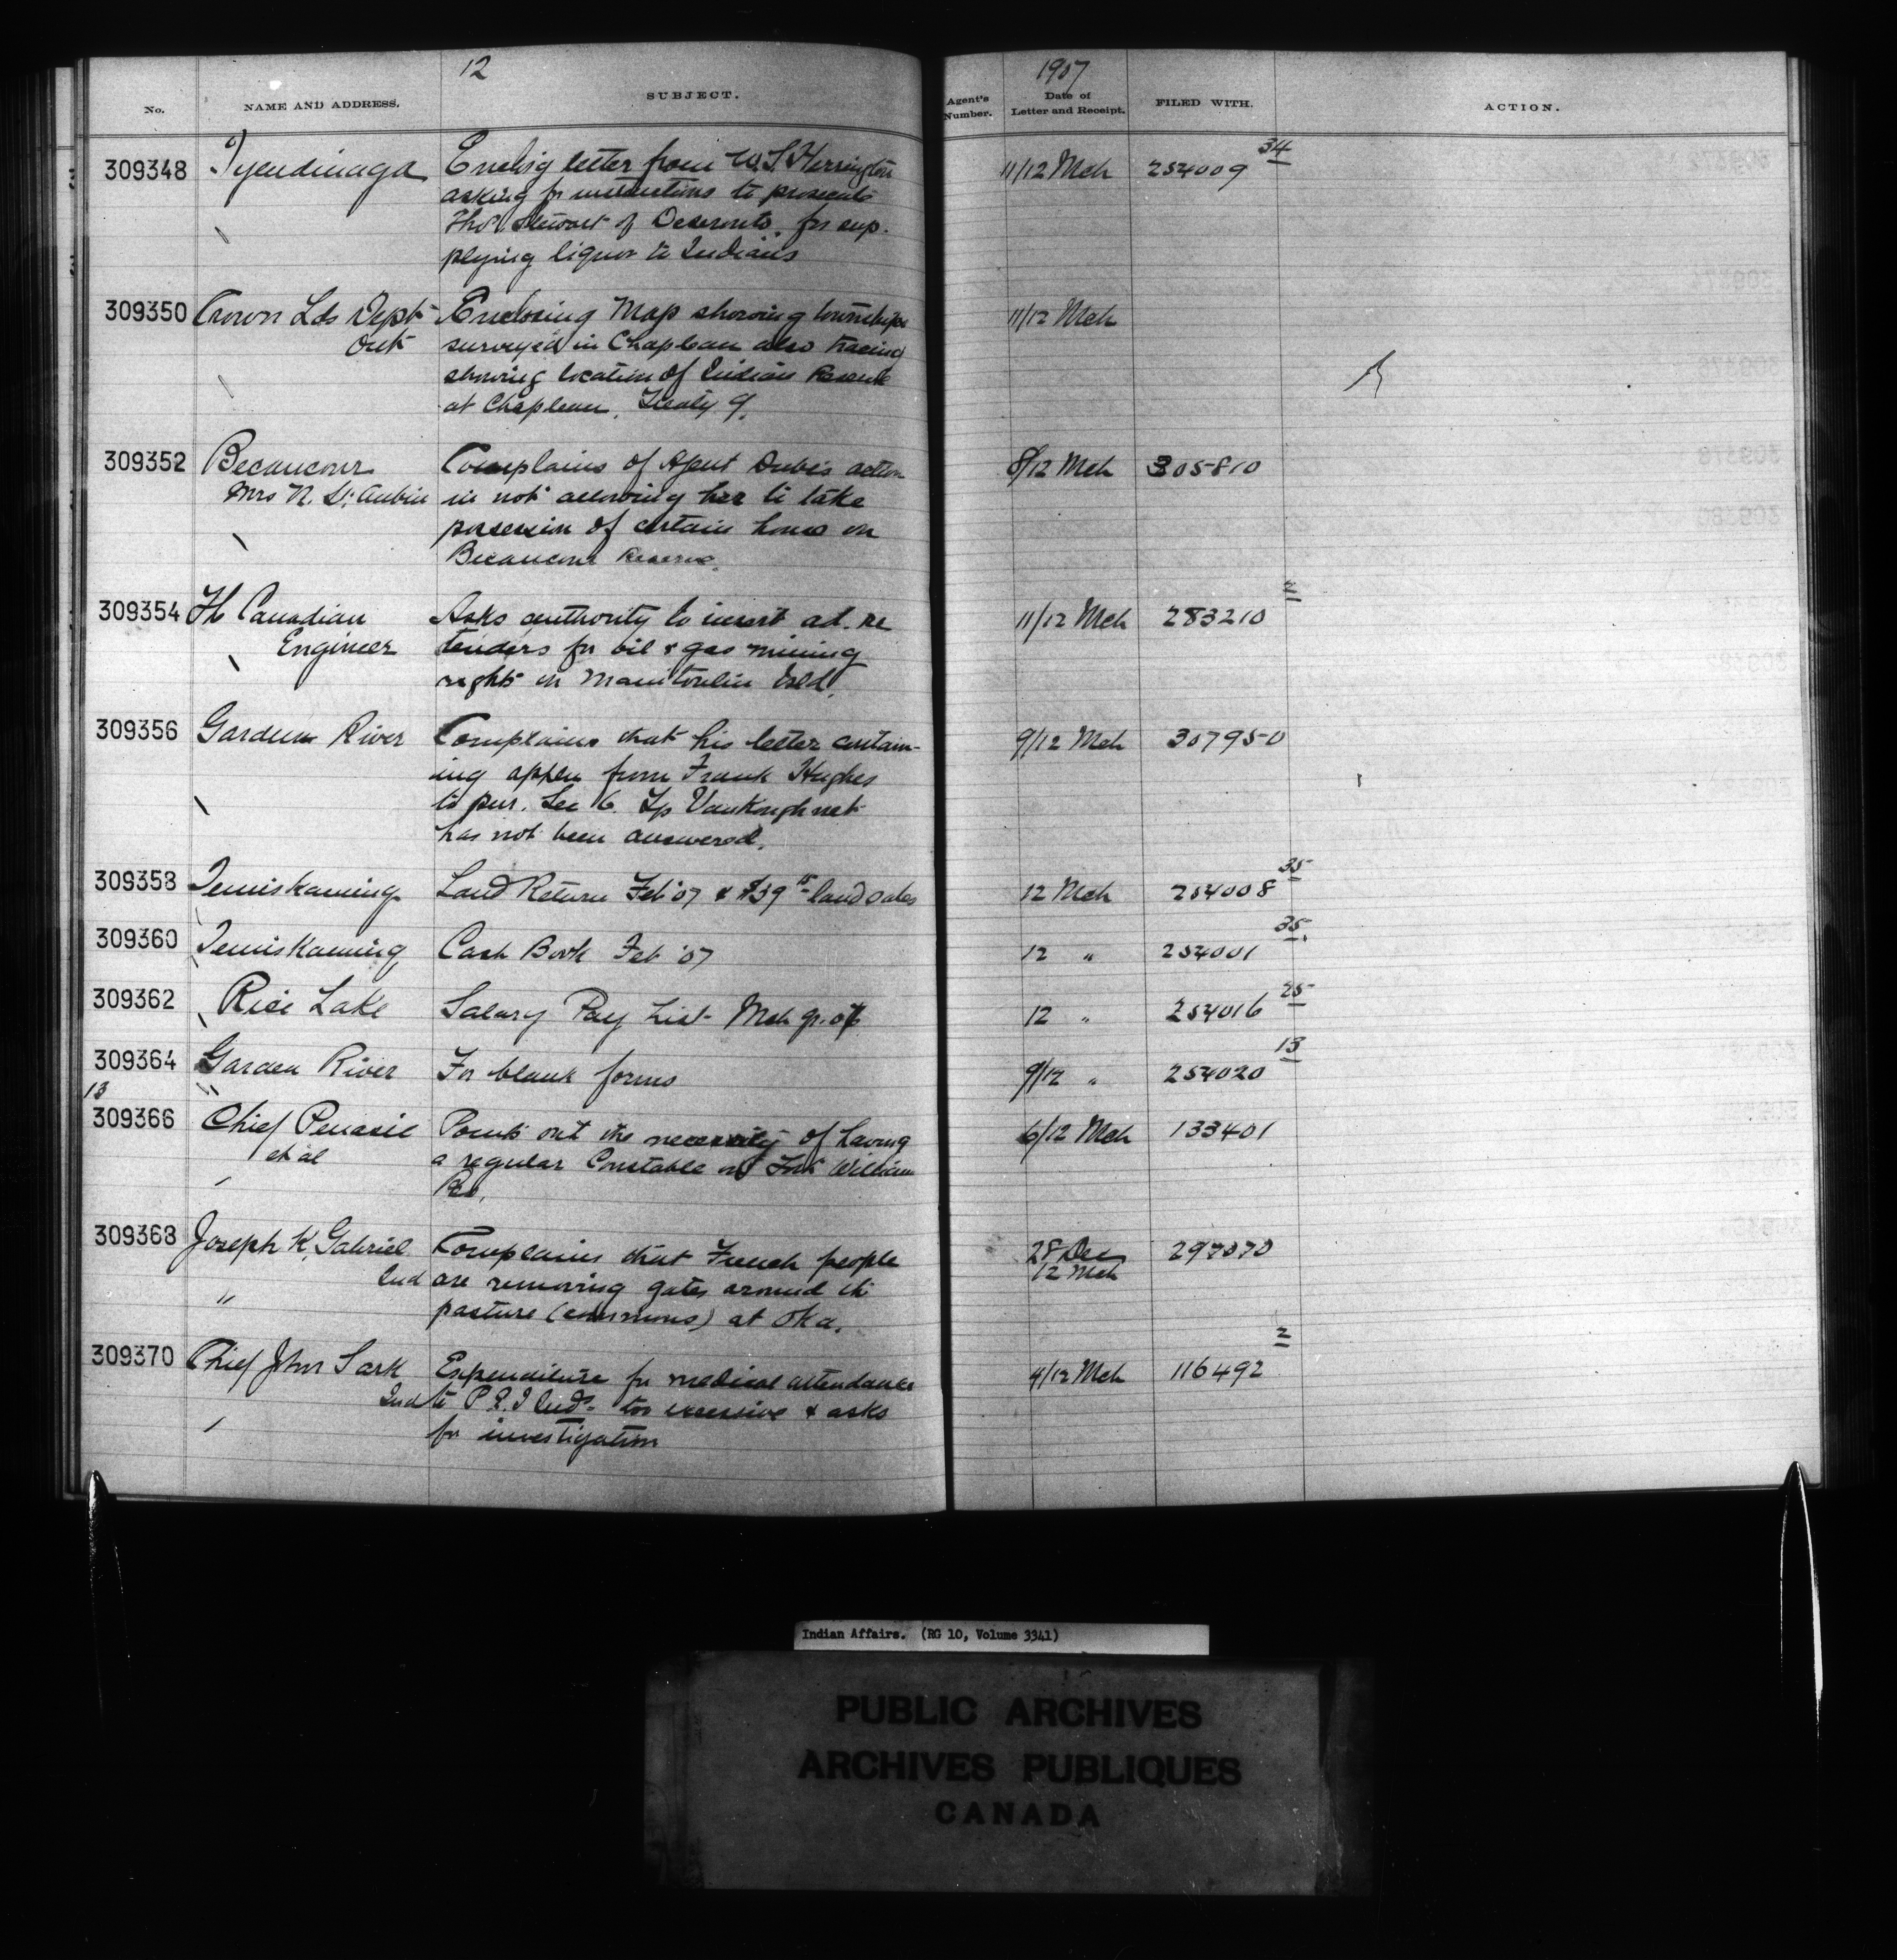 12
1907
No. NAME AND ADDRESS. SUBJECT. Agent's Number. Date of Letter and Receipt. FILED WITH. ACTION.
309348 Tyendinaga Enclsig letter from W.S. Herrington 11/12 Mch 254009 34
asking for instructions to prosecute
Thos Stewart of Deseronto, for sup-
plying liquor to Indians
309350 Crown Lds Dept Enclosing Map showing townships 11/12 Mch
Ont surveyed in Chapleau also tracing
showing location of Indian Reserve
at Chapleau, Treaty 9.
309352 Becancour Complains of Agent Dube's action 8/12 Mch 305810
Mrs N. St. Aubin in not allowing her to take
possession of certain house on
Becancour Reserve.
309354 Th Canadian Asks authority to insert ad. re 11/12 Mch 283210 2
Engineer tenders for oil & gas mining
rights on Manitoulin Isld.
309356 Garden River Complains that his letter contain- 9/12 Mch 307950
ing appln from Frank Hughes
to pur. Sec 6. Tp VanKoughnet
has not been answered.
309358 Temiskaming Land Return Feb '07 & $39 15 land sales 12 Mch 254008 35
309360 Temiskaming Cash Book Feb '07 12 " 254001 35
309362 Rice Lake Salary Pay List Mch qr. 07 12 " 254016 25
309364 Garden River For blank forms 9/12 " 254020 13
13
309366 Chief Penasie Points out the necessity of having 6/12 Mch 133401
et al a regular Constable on Fort William
Res.
309368 Joseph K. Gabriel Complains that French people 28 Dec 297070
Ind are removing gates around th 12 Mch
" pasture (commons) at Oka.
309370 Chief John Sark Expenditure for medical attendance 4/12 Mch 116492 2
Ind to P.E.I Inds too excessive & asks
for investigation
Indian Affairs. (RG 10, Volume 3341)
PUBLIC ARCHIVES
ARCHIVES PUBLIQUES
CANADA